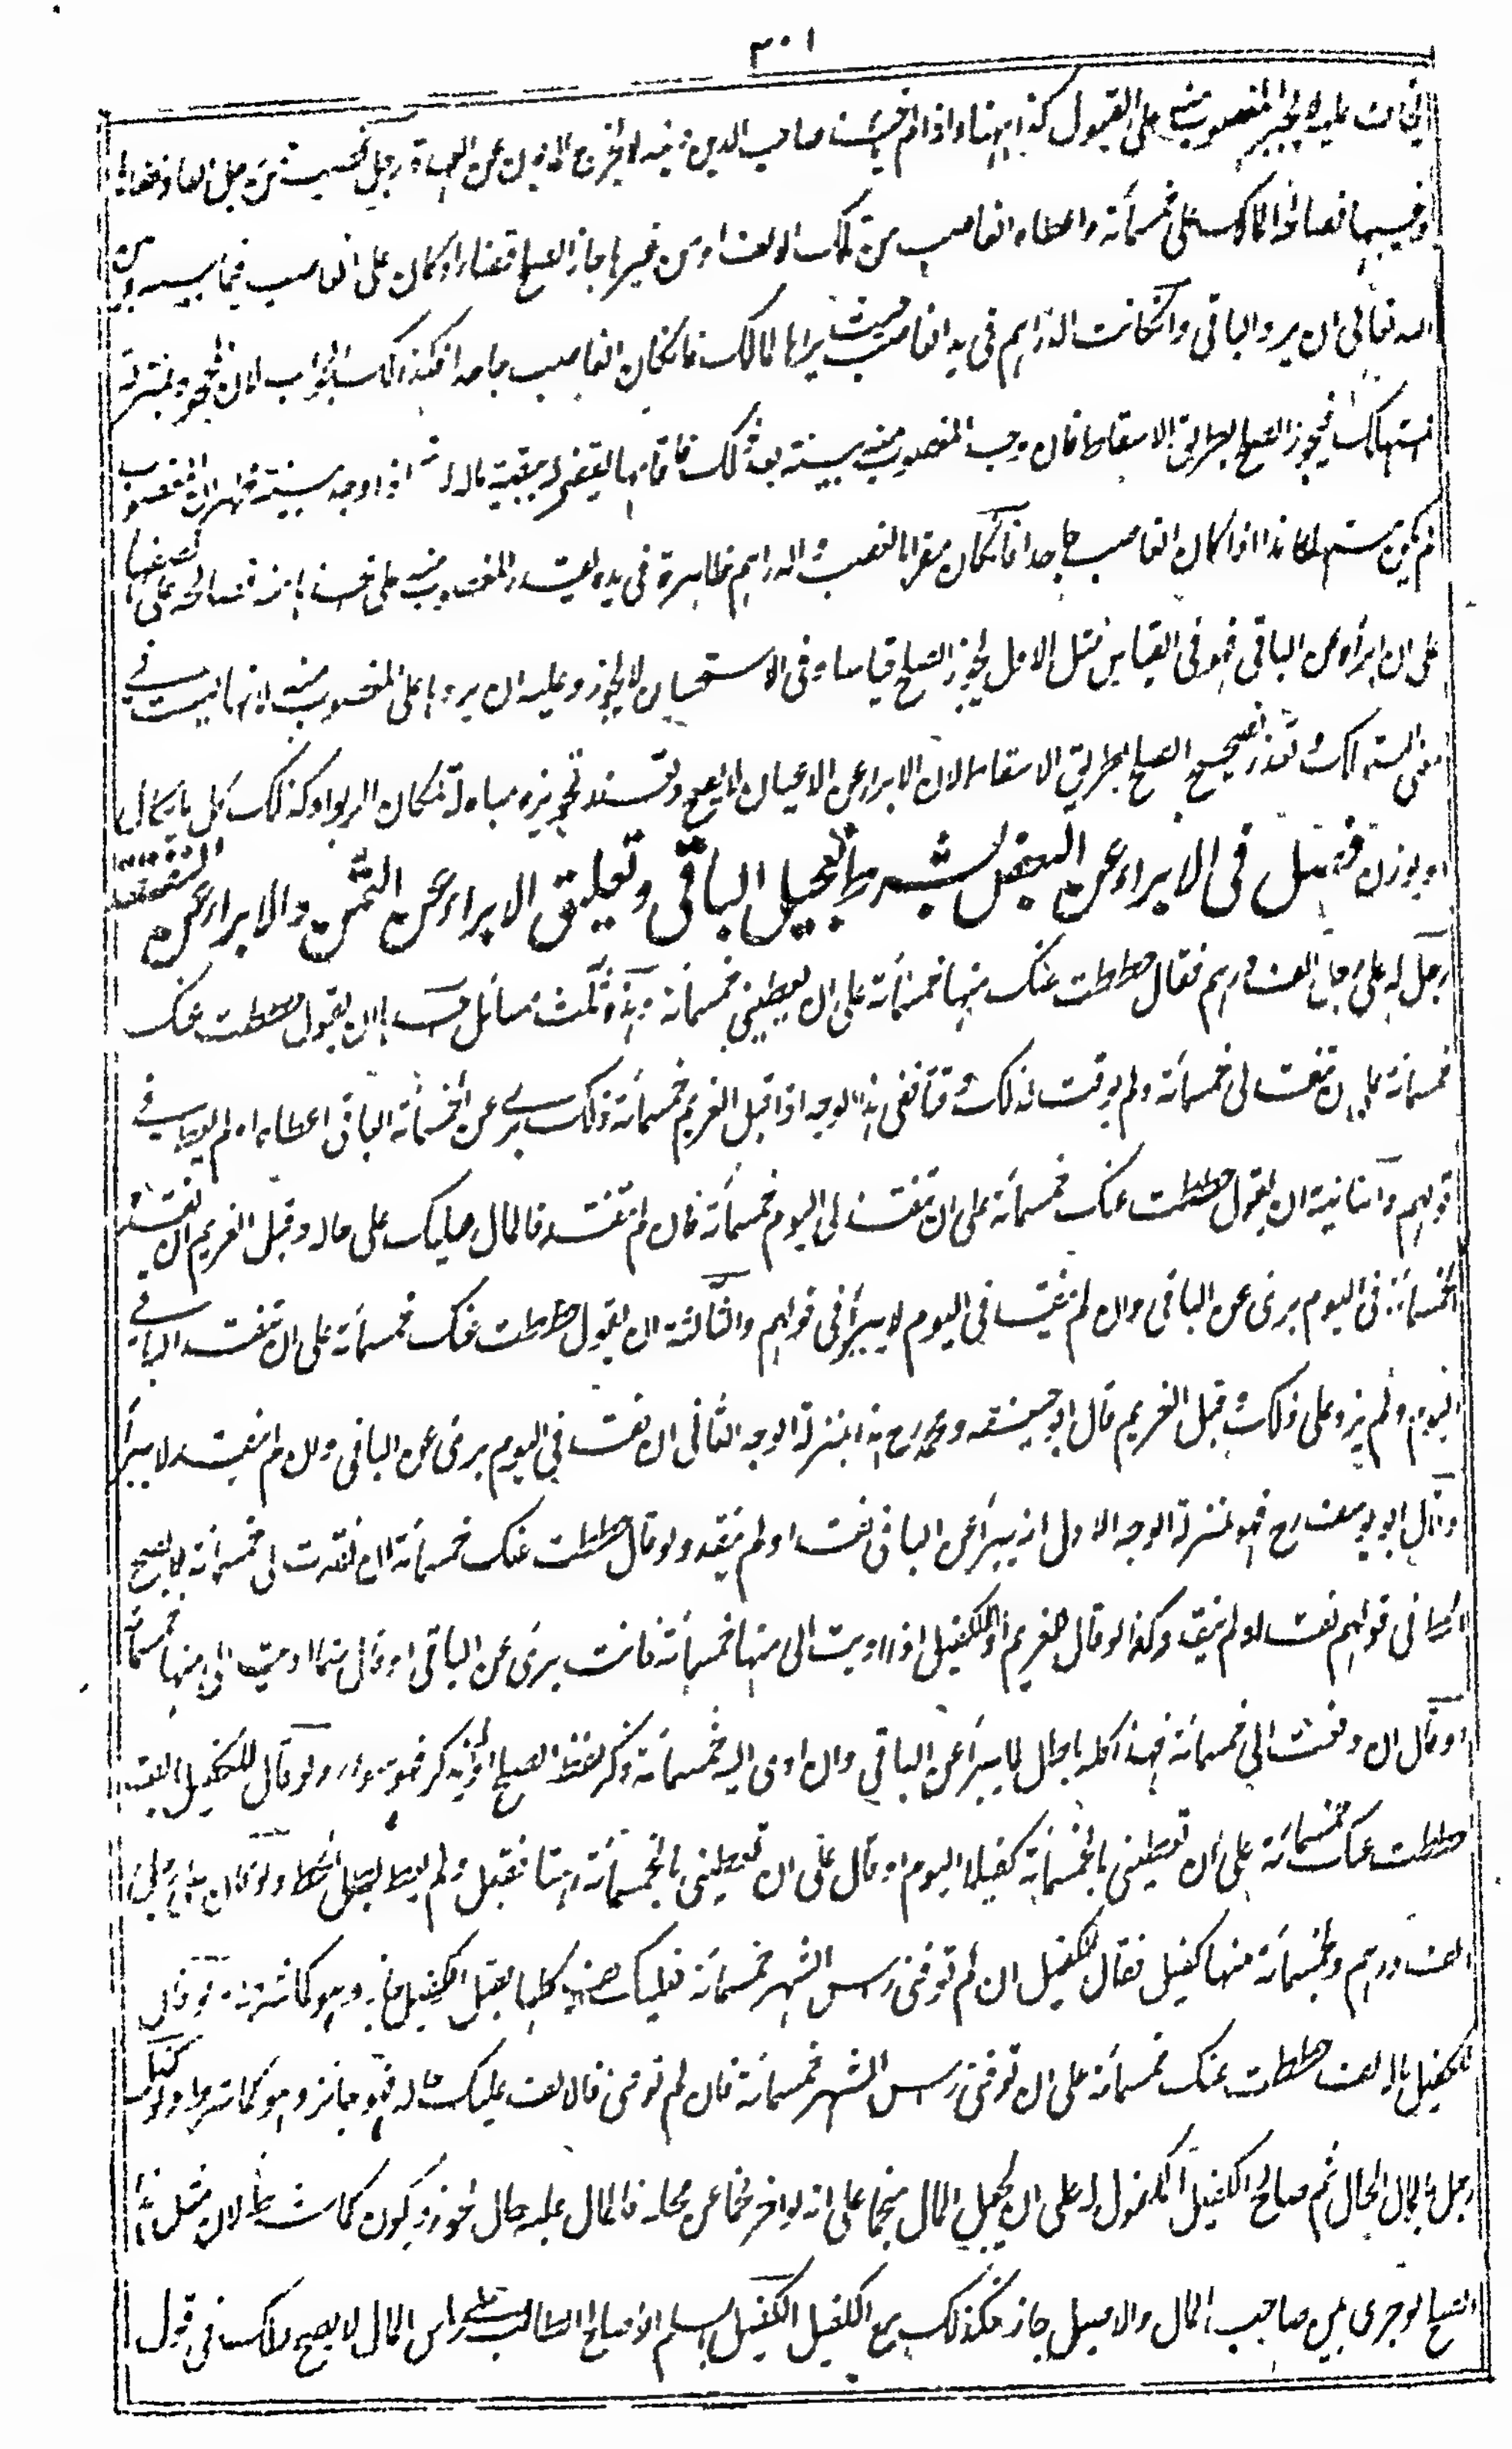 ٣٠١
على القبول كذا ههنا واذا لم صاحب الدين لا يخرج المديون عن العهدة رجل غصب من رجل الفا واخفاها
وغيبها فصالحه المالك على خمسمأة واعطاه الغاصب من تلك الالف او من غيرها جاز الصلح قضاء وكان على الغاصب فيما بينه وبين
الله تعالى ان يرد الباقي وانكانت الدراهم في يد الغاصب حيث يراها المالك فانكان الغاصب جاحدا فكذلك الجواب لان الجحود بمنزلة
الاستهلاك فيجوز الصلح بطريق الاسقاط فان وجد المغصوب منه بينة بعد ذلك فاقامها يقضى له ببقية ماله لانه اذا وجد بينة ظهر ان المغصوب
لم يكن مستهلكا هذا اذا كان الغاصب جاحدا فانكان مقرا بالغصب والدراهم ظاهرة في يده يقدر المغصوب منه على اخذها منه فصالحه على نصفها
على ان ابرأه عن الباقي فهو في القياس مثل الاول يجوز الصلح قياسا وفي الاستحسان لا يجوز وعليه ان يردها على المغصوب منه لانها ليست في
معنى المستهلك وتعذر تصحيح الصلح بطريق الاسقاط لان الابراء عن الاعيان لا يصح وتعذر تجويزه مبادلة لمكان الربوا وكذلك كل ما يكال
او يوزن فصل في الابراء عن البعض بشرط تعجيل الباقي وتعليق الابراء عن الثمن والابراء عن النفقة
رجل له على رجل الف درهم فقال حططت عنك منها خمسمأة على ان تعطيني خمسمأة فهذه ثلث مسائل احدها ان يقول حططت عنك
خمسمأة على ان تنقد لي خمسمأة ولم يوقت لذلك وقتا ففي هذا الوجه اذا قبل الغريم خمسمأة ذلك برئ عن الخمسمأة الباقي اعطاها او لم يعط في
قولهم والثانية ان يقول حططت عنك خمسمأة على ان تنقد لي اليوم خمسمأة فان لم تنقد فالمال عليك على حاله وقبل الغريم ان نقد
الخمسمأة في اليوم برئ عن الباقي وان لم ينقد في اليوم لا يبرأ في قولهم والثالثة ان يقول حططت عنك خمسمأة على ان تنقد الباقي
اليوم ولم يزد على ذلك وقبل الغريم قال ابو حنيفة ومحمد رح هذا بمنزلة الوجه الثاني ان نقد في اليوم برئ عن الباقي وان لم ينقد لا يبرأ
وقال ابو يوسف رح فهو بمنزلة الوجه الاول انه يبرأ عن الباقي نقد او لم ينقد ولو قال حططت عنك خمسمأة ان نقدت لي خمسمأة لا يصح
الحط في قولهم نقد او لم ينقد وكذا لو قال للغريم او للكفيل اذا اديت الي منها خمسمأة فانت برئ عن الباقي او قال متى ما اديت الي منها خمسمأة
او قال ان دفعت الي خمسمأة فهذا كله باطل لا يبرأ عن الباقي وان ادى اليه خمسمأة ذكر لفظ الصلح او لم يذكر فهو سواء ولو قال للكفيل
حططت عنك خمسمأة على ان تعطيني بالخمسمأة كفيلا اليوم او قال على ان تعطيني بالخمسمأة رهنا فقبل ولم يعط بطل الحط ولو كان له على رجل
الف درهم وبخمسمأة منها كفيل فقال للكفيل ان لم توفني رأس الشهر خمسمأة فعليك كلها فقبل الكفيل جاز وهو كما شرط ولو قال
للكفيل بالالف حططت عنك خمسمأة على ان توفني رأس الشهر خمسمأة فان لم توفني فالالف عليك فهو جائز وهو كما شرط ولو كفل
رجل بالمال الحال ثم صالح الكفيل المكفول له على ان يجعل المال نجما على انه لو اخر نجما عن محله فالمال عليه حال يجوز ويكون كما شرط لان مثل هذا
الصلح لو جرى بين صاحب المال والاصيل جاز فكذلك مع الكفيل الكفيل بالسلم اذا صالح الطالب على رأس المال لا يصح ذلك في قول